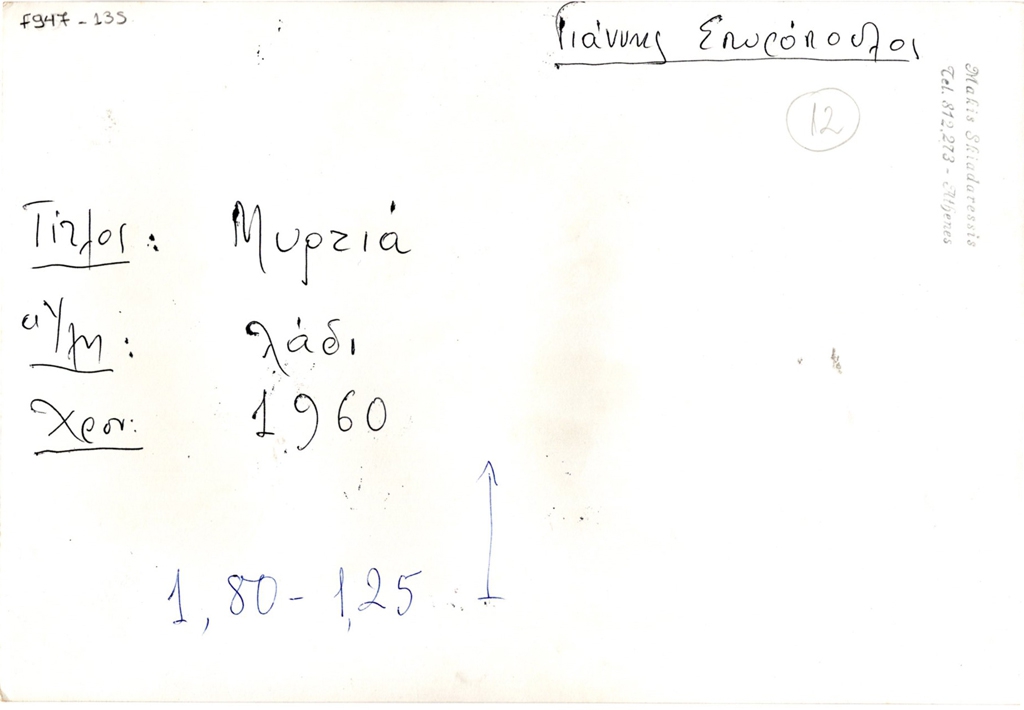 F947-135
Γιάννης Σπυρόπουλος
12
Makis Skiadaressis
Tel. 812.273 - Athenes
Τίτλος: Μυρτιά
Ύλη: λάδι
Χρον: 1960
1,80-1,25